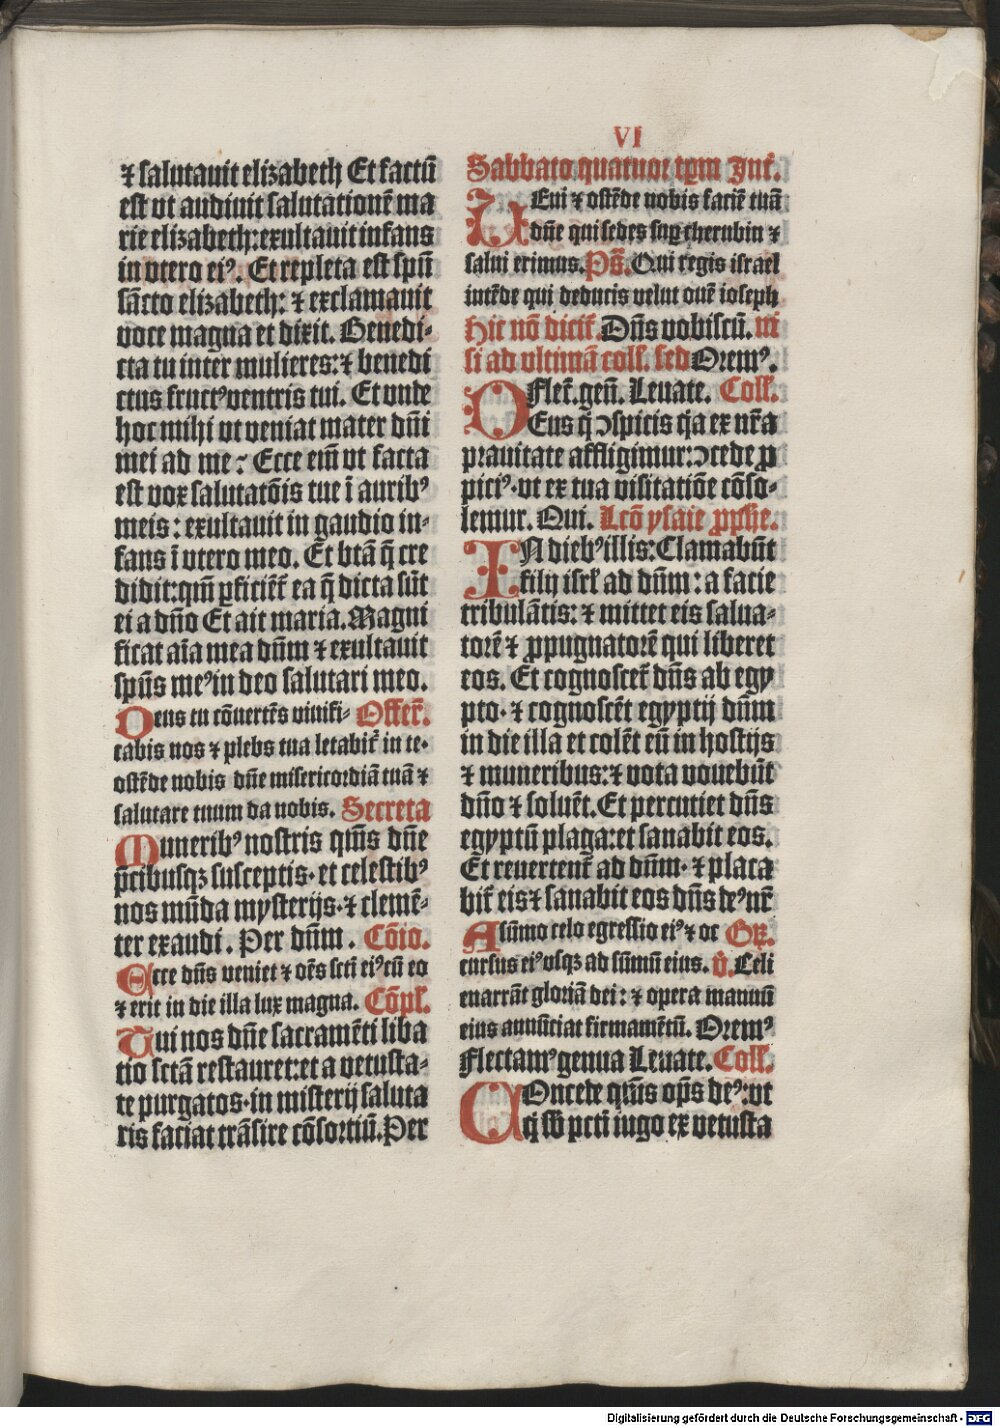 VI
⁊ salutauit elizabeth Et factū
est vt audiuit salutationē ma
rie elizabeth: exultauit infans
in vtero eiꝰ. Et repleta est spū
sācto elizabeth: ⁊ exclamauit
voce magna et dixit. Benedi-
cta tu inter mulieres: ⁊ benedi
ctus fructꝰ ventris tui. Et vnde
hoc mihi vt veniat mater dn̄i
mei ad me? Ecce em̄ vt facta
est vox salutatōis tue ī auribꝰ
meis: exultauit in gaudio in-
fans ī vtero meo. Et btā q̄ cre
didit: qm̄ ꝑficiēt̄ ea q̄ dicta sūt
ei a dn̄o Et ait maria. Magni
ficat aīa mea dn̄m ⁊ exultauit
spūs meꝰ in deo salutari meo.
Deus tu cōuertēs viuifi- Offer̄.
cabis nos ⁊ plebs tua letabit̄ in te.
ostēde nobis dn̄e misericordiā tuā ⁊
salutare tuum da nobis. Secreta
Muneribꝰ nostris qm̄s dn̄e
p̄cibusqꝫ susceptis. et celestibꝰ
nos mūda mysterijs. ⁊ clemē-
ter exaudi. Per dn̄m. Cōio.
Ecce dn̄s veniet ⁊ om̄s sctī eiꝰ cū eo
⁊ erit in die illa lux magna. Cōpl̄.
Tui nos dn̄e sacramēti liba
tio sctā restauret: et a vetusta-
te purgatos. in misterij saluta
ris faciat trāsire cōsortiū. Per
Sabbato quatuor tꝑm Int̄.
VEni ⁊ ostēde nobis faciē tuā
dn̄e qui sedes suꝑ cherubin ⁊
salui erimus. Ps̄. Qui regis israel
intēde qui deducis velut ouē ioseph
Hic nō dicit̄. Dn̄s vobiscū. ni
si ad vltimā coll̄. sed Oremꝰ.
Flect̄. gen̄. Leuate. Coll̄.
DEus q̄ ↄspicis qꝛa ex nr̄a
prauitate affligimur: ↄcede ꝓ
piciꝰ. vt ex tua visitatiōe cōso-
lemur. Qui. Lcō ysaie ꝓphe.
IN diebꝰ illis: Clamabūt
filij isrl̄ ad dn̄m: a facie
tribulātis: ⁊ mittet eis salua-
torē ⁊ ꝓpugnatorē qui liberet
eos. Et cognoscet̄ dn̄s ab egy
pto. ⁊ cognoscēt egyptij dn̄m
in die illa et colēt eū in hostijs
⁊ muneribus: ⁊ vota vouebūt
dn̄o ⁊ soluēt. Et percutiet dn̄s
egyptū plaga: et sanabit eos.
Et reuertent̄ ad dn̄m. ⁊ placa
bit̄ eis ⁊ sanabit eos dn̄s deꝰ nr̄
A sūmo celo egressio eiꝰ ⁊ oc Gr̄.
cursus eiꝰ vsqꝫ ad sūmū eius. v̄. Celi
enarrāt gloriā dei: ⁊ opera manuū
eius annūciat firmamētū. Oremꝰ
Flectamꝰ genua Leuate. Coll̄.
COncede qm̄s op̄s deꝰ: vt
q̄ sb̄ pctī iugo ex vetusta
Digitalisierung gefördert durch die Deutsche Forschungsgemeinschaft - DFG